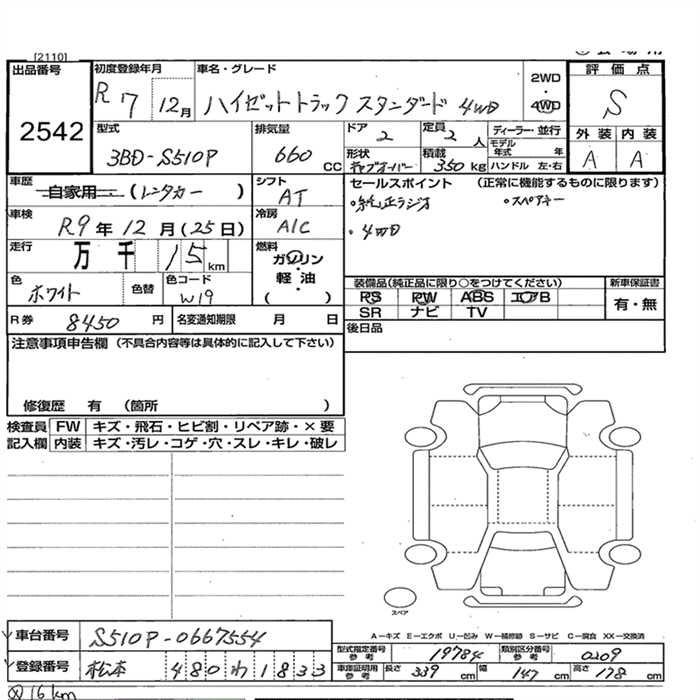 [2110]
出品番号
2542
初度登録年月
R7 12月
車名・グレード
ハイゼットトラック スタンダード 4WD
2WD
・
4WD
評価点
S
外装 内装
A A
型式
3BD-S510P
排気量
660 CC
ドア
2
定員
2人
ディーラー・並行
モデル年式 年
形状
キャブオーバー
積載
350kg
ハンドル 左・右
車歴
自家用 (レンタカー)
シフト
AT
セールスポイント (正常に機能するものに限ります)
・純正ラジオ ・スペアキー
・4WD
車検
R9年12月(25日)
冷房
A/C
走行
万千 15km
燃料
ガソリン
軽・油
( )
色
ホワイト
色替
色コード
W19
装備品(純正品に限り○をつけてください)
PS PW ABS エアB
SR ナビ TV
新車保証書
有・無
R券
8450円
名変通知期限 月 日
後日品
注意事項申告欄 (不具合内容等は具体的に記入して下さい)
修復歴 有 (箇所 )
検査員 FW キズ・飛石・ヒビ割・リペア跡・×要
記入欄 内装 キズ・汚レ・コゲ・穴・スレ・キレ・破レ
スペア
A-キズ E-エクボ U-凹み W-補修跡 S-サビ C-腐食 XX-交換済
車台番号
S510P-0667554
登録番号
松本 480わ1833
型式指定番号
参考
19784
類別区分番号
参考
0209
車庫証明用
参考
長さ 339cm 幅 147cm 高さ 178cm
16km